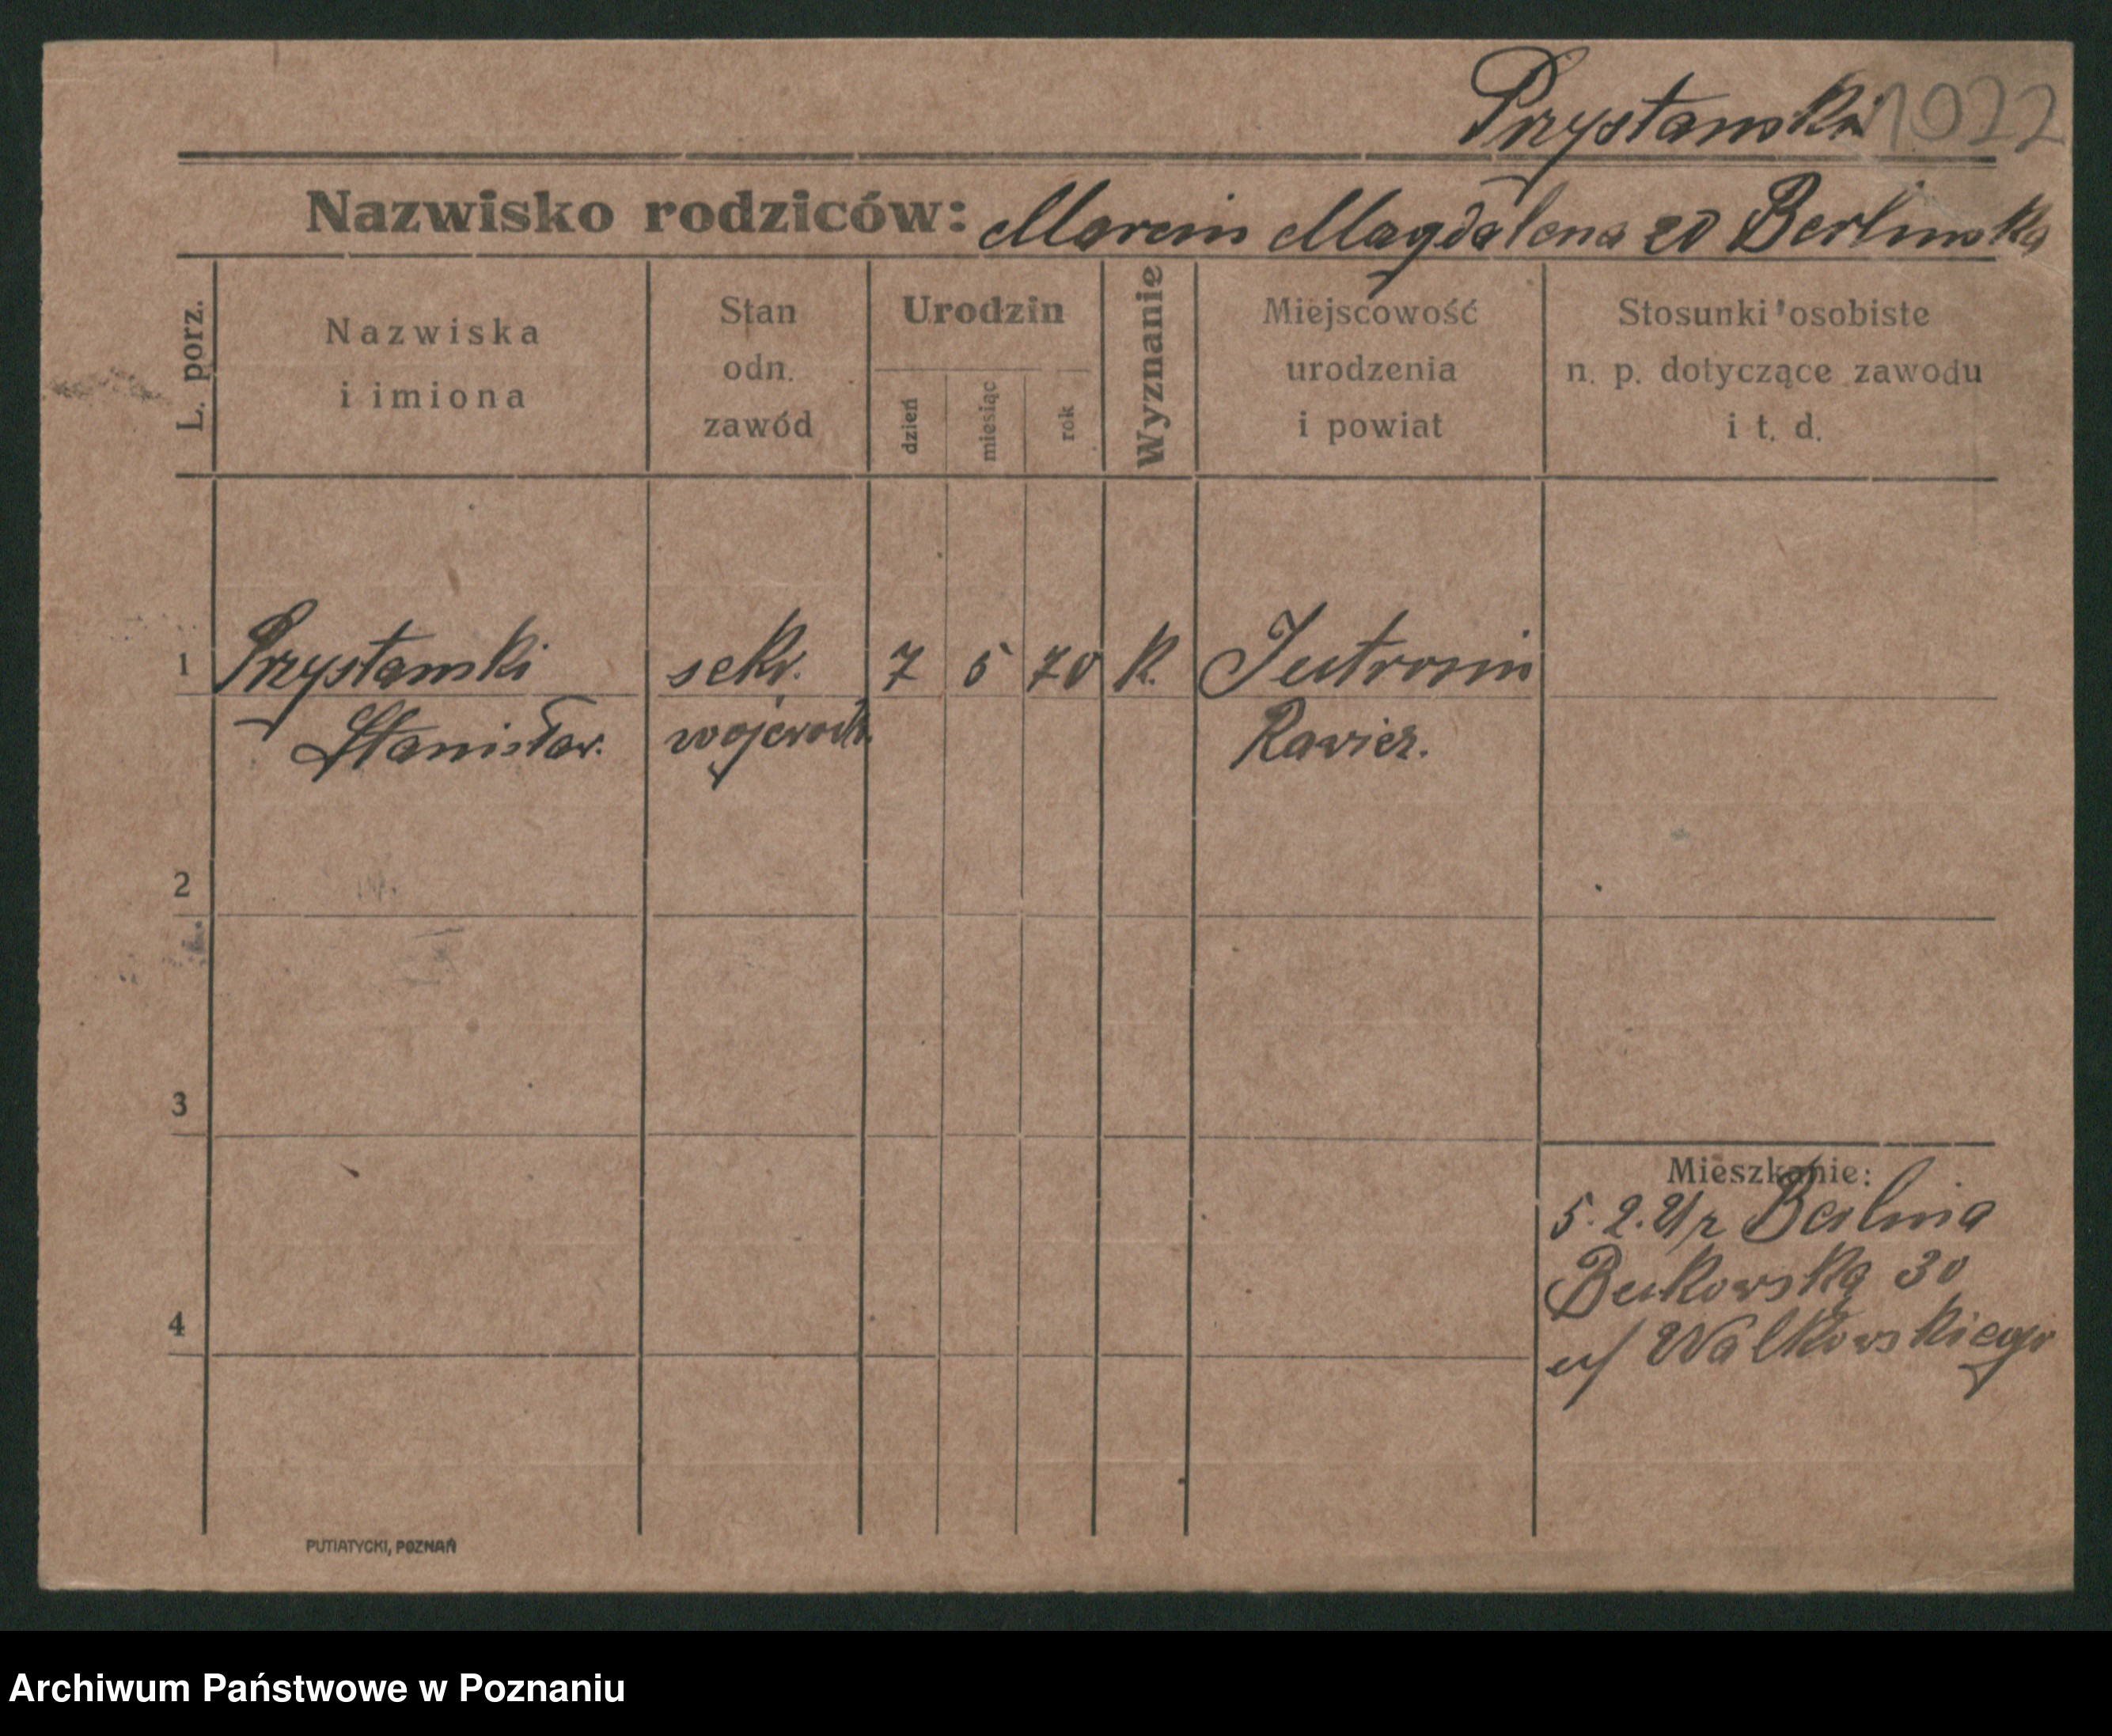 Przystanski 1022
Nazwisko rodziców: Marcin Magdalena zd Berlinska
L. porz.
Nazwiska
i imiona
Stan
odn.
zawód
Urodzin
dzień
miesiąc
rok
Wyznanie
Miejscowość
urodzenia
i powiat
Stosunki osobiste
n. p. dotyczące zawodu
i t. d.
1 Przystanski sekr. 7 5 70 k. Jutrosin
Stanisław. wojewódz. Rawicz.
2
3
4
Mieszkanie:
5. 2. 21 z Berlina
Bukowska 30
u/ Walkowskiego
PUTIATYCKI, POZNAŃ
Archiwum Państwowe w Poznaniu